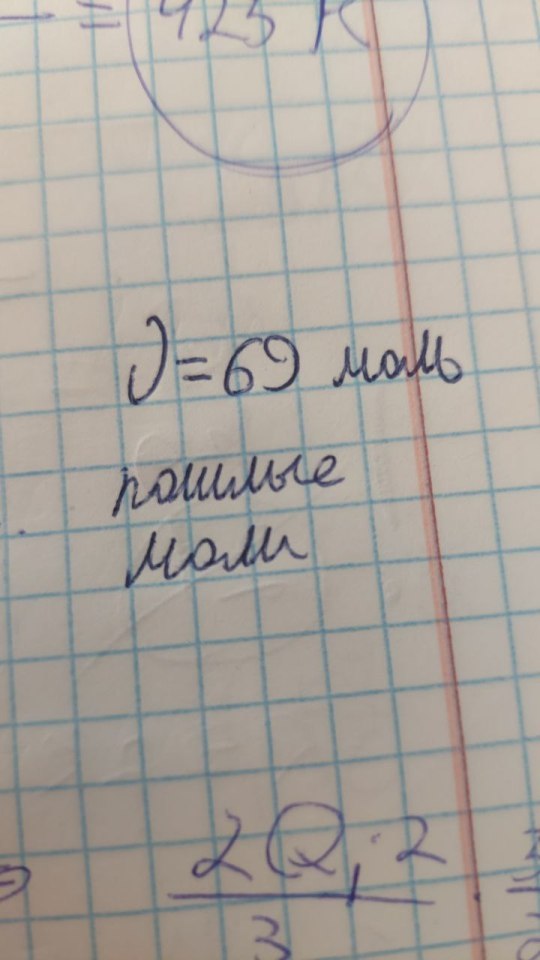 — = 423 К
ν = 69 моль
пошлые
моли
2Q₁·2
3